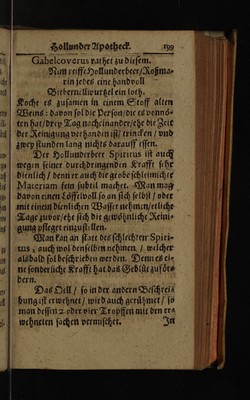 Hollunder Apotheck. 199
Gabelcoverus rathet zu diesem.
Nim reiffe Hollunderbeer/Roßma-
rin jedes eine handvoll
Bibernellwurtzel ein loth.
Koche es zusamen in einem Stoff alten
Weins: davon sol die Person/die es vonnö-
ten hat/drey Tag nacheinander/ehe die Zeit
der Reinigung verhanden ist/trincken/und
zwey stunden lang nichts darauff essen.
Der Hollunderbeer Spiritus ist auch
wegen seiner durchdringenden Krafft sehr
dienlich/denn er auch die grobe schleimichte
Materiam fein subtil machet. Man mag
davon einen Löffelvoll so an sich selbst/oder
mit einem dienlichen Wasser nehmen/etliche
Tage zuvor/ehe sich die gewöhnliche Reini-
gung pfleget einzustellen.
Man kan an statt des schlechten Spiri-
tus/auch wol denselben nehmen/welcher
alsbald sol beschrieben werden. Denn es ei-
ne sonderliche Krafft hat das Geblüt zu för-
dern.
Das Oell/so in der andern Beschrei-
bung ist erwehnet/wird auch gerühmet/so
man dessen 2. oder vier Tropffen mit den er-
wehneten sachen vermischet.
In